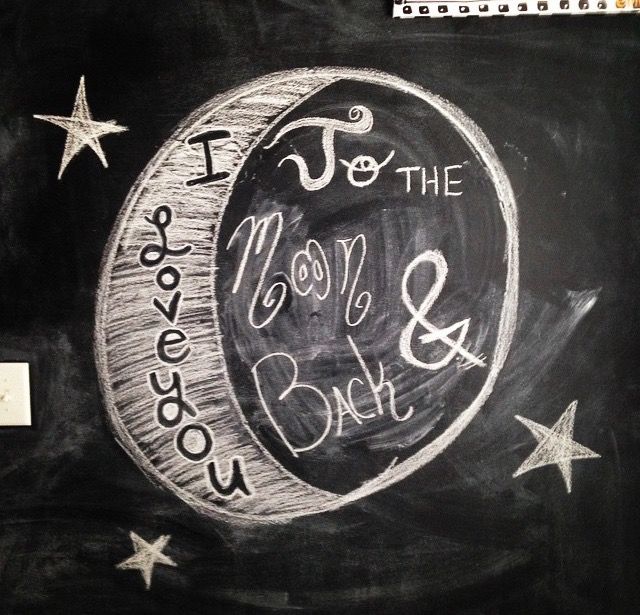 I
Love you
To THE
Moon
&
Back